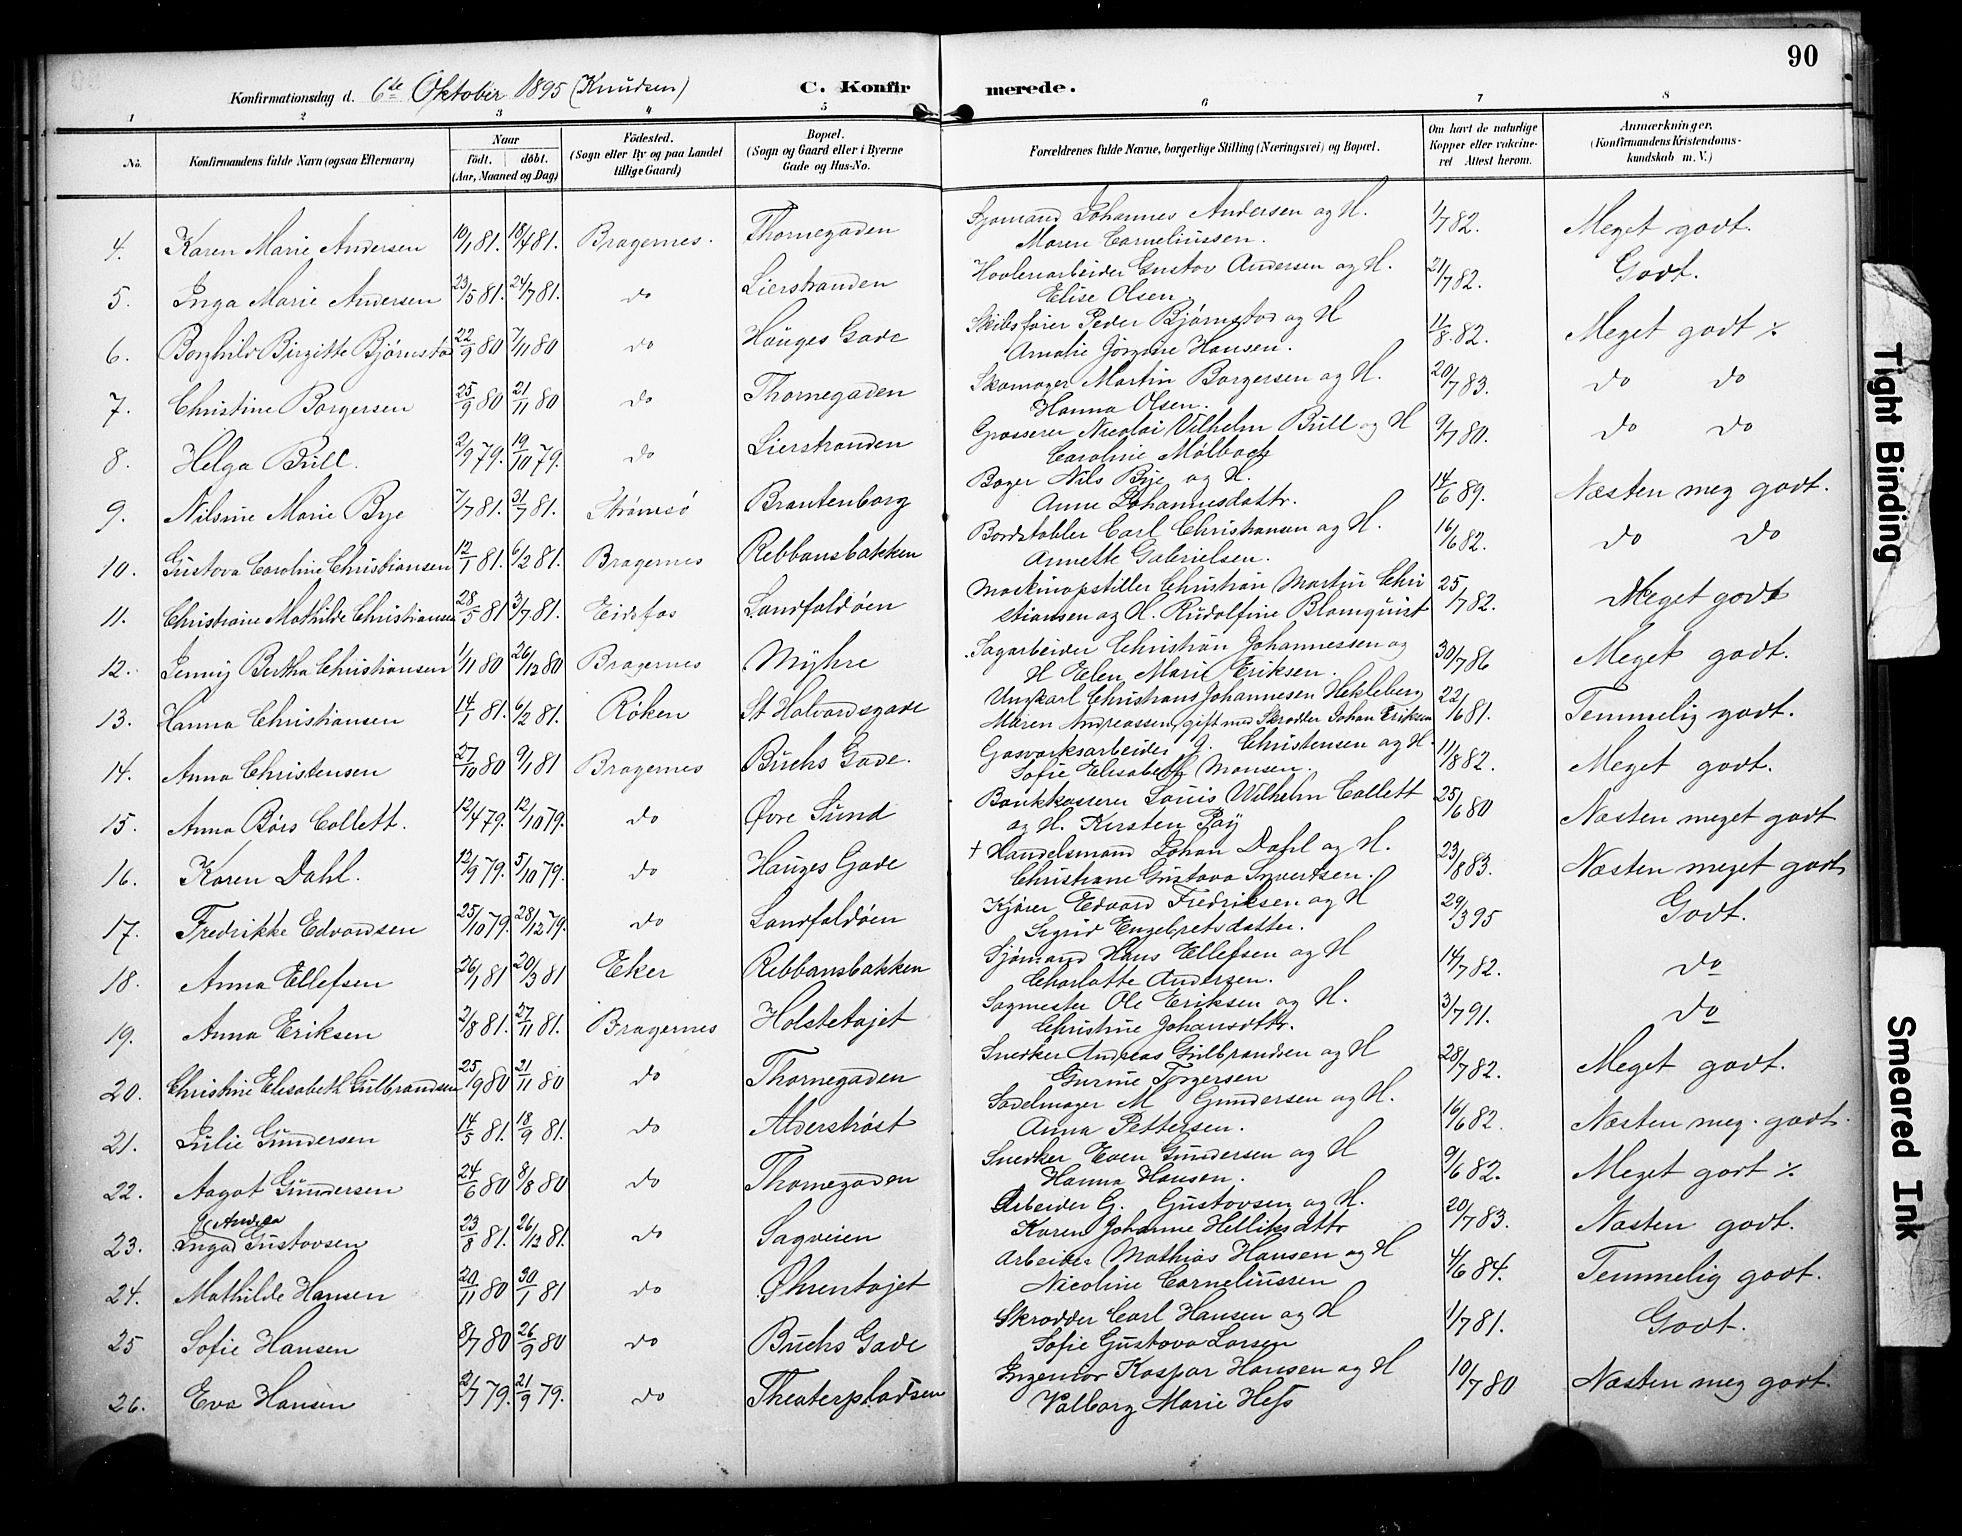 90
Konfirmationsdag d. 6te Oktober 1895 (Knudsen) C. Konfirmerede.
1 2 3 4 5 6 7 8
No. Konfirmandens fulde Navn (ogsaa Efternavn) Naar født. døbt. (Aar, Maaned og Dag) Födested. (Sogn eller By og paa Landet tillige Gaard) Bopæl. (Sogn og Gaard eller i Byerne Gade og Hus-No. Forældrenes fulde Navne, borgerlige Stilling (Næringsvei) og Bopæl. Om havt de naturlige Kopper eller vaccineret Attest herom. Anmærkninger. (Konfirmandens Kristendomskundskab m. V.)
4. Karen Marie Andersen 10/1 81. 18/4 81. Bragernes. Thornegaden Sjømand Johannes Andersen og H. 1/7 82. Meget godt.
Maren Corneliussen.
5. Inga Marie Andersen 23/5 81. 24/7 81. do Lierstranden Høvleriarbeider Gustav Andersen og H. 21/7 82. Godt.
Elise Olsen
6. Borghild Birgitte Bjørnstad 22/9 80 7/11 80 do Hauges Gade Skibsfører Peder Bjørnstad og H 11/8 82. Meget godt ٪
Amalie Jørgine Hansen.
7. Christine Borgersen 25/9 80 21/11 80 do Thornegaden Skomager Martin Borgersen og H. 20/7 83. do do
Hanna Olsen.
8. Helga Bull. 2/9 79. 19/10 79. do Lierstranden Grosserer Nicolai Wilhelm Bull og H 9/7 80. do do
Caroline Mølbach
9. Nilsine Marie Bye 7/7 81. 31/7 81. Strømsø Brantenborg Bager Nils Bye og H. 14/6 89. Næsten meg godt.
Anne Johannesdattr.
10. Gustava Caroline Christiansen 12/1 81. 6/2 81. Bragernes Ribbansbakken Bordstabler Carl Christiansen og H. 16/6 82. do do
Annette Gabrielsen.
11. Christiane Mathilde Christiansen 28/5 81 3/7 81. Eidsfos Landfaldøen Maskinopstiller Christian Martin Chri 25/7 82. Meget godt
stiansen og H. Rudolfine Blomquist
12. Jenny Bertha Christiansen 1/11 80 26/12 80 Bragernes Myhre Sagarbeider Christian Johannessen og 30/7 86 Meget godt.
H Elen Marie Eriksen.
13. Hanna Christiansen 14/1 81. 6/2 81. Røken St Halvardsgade Ungkarl Christians Johannesen Hekleberg 22/6 81. Temmelig godt.
Maren Andreassen, gift med Skrædder Johan Eriksen
14. Anna Christensen 27/10 80 9/1 81 Bragernes Buchs Gade. Gasværksarbeider J. Christensen og H. 11/8 82. Meget godt.
Sofie Elisabeth Monsen.
15. Anna Børs Collett. 12/4 79. 12/10 79. do Øvre Sund Bankkasserer Louis Wilhelm Collett 25/6 80 Næsten meget godt
og H. Kirsten Pay
16. Karen Dahl. 12/9 79. 5/10 79. do Hauges Gade † Handelsmand Johan Dahl og H. 23/8 83. Næsten meget godt
Christiane Gustava Sivertsen.
17. Fredrikke Edvardsen 25/10 79. 28/12 79. do Landfaldøen Kjører Edvard Fredriksen og H 29/3 95 Godt.
Sigrid Engebretsdatter.
18. Anna Ellefsen 26/1 81 20/3 81 Eker Ribbansbakken Sjømand Hans Ellefsen og H 14/7 82. do
Charlotte Andersen.
19. Anna Eriksen 2/8 81. 27/11 81. Bragernes Holstetøjet Sagmester Ole Eriksen og H. 3/7 91. do
Christine Johansdttr.
20. Christine Elisabeth Gulbrandsen 25/9 80 21/11 80 do Thornegaden Snedker Andreas Gulbrandsen og H 28/7 82. Meget godt.
Gurine Torgersen
21. Julie Gundersen 14/5 81. 18/9 81. do Alderstrøst Sadelmager M Gundersen og H. 16/6 82. Næsten meg. godt.
Anna Pettersen.
22. Aagot Gundersen 24/6 80 8/8 80 do Thornegaden Snedker Even Gundersen og H 9/6 82. Meget godt ٪
Hanna Hansen.
Andrea
23. Inga Gustavsen 23/8 81. 26/12 81. do Sagveien Arbeider G. Gustavsen og H. 20/7 83. Næsten godt.
Karen Johanne Helliksdttr
24. Mathilde Hansen 20/11 80 30/1 81 do Øhrentøjet Arbeider Mathias Hansen og H 4/6 84. Temmelig godt.
Nicoline Corneliussen
25 Sofie Hansen 8/7 80 26/9 80 do Buchs Gade Skrædder Carl Hansen og H 1/7 81. Godt.
Sofie Gustava Larsen
26. Eva Hansen 2/7 79. 21/9 79. do Theaterpladsen Ingeniør Kaspar Hansen og H 10/7 80 Næsten meg godt.
Valborg Marie Hess
Tight Binding
Smeared Ink